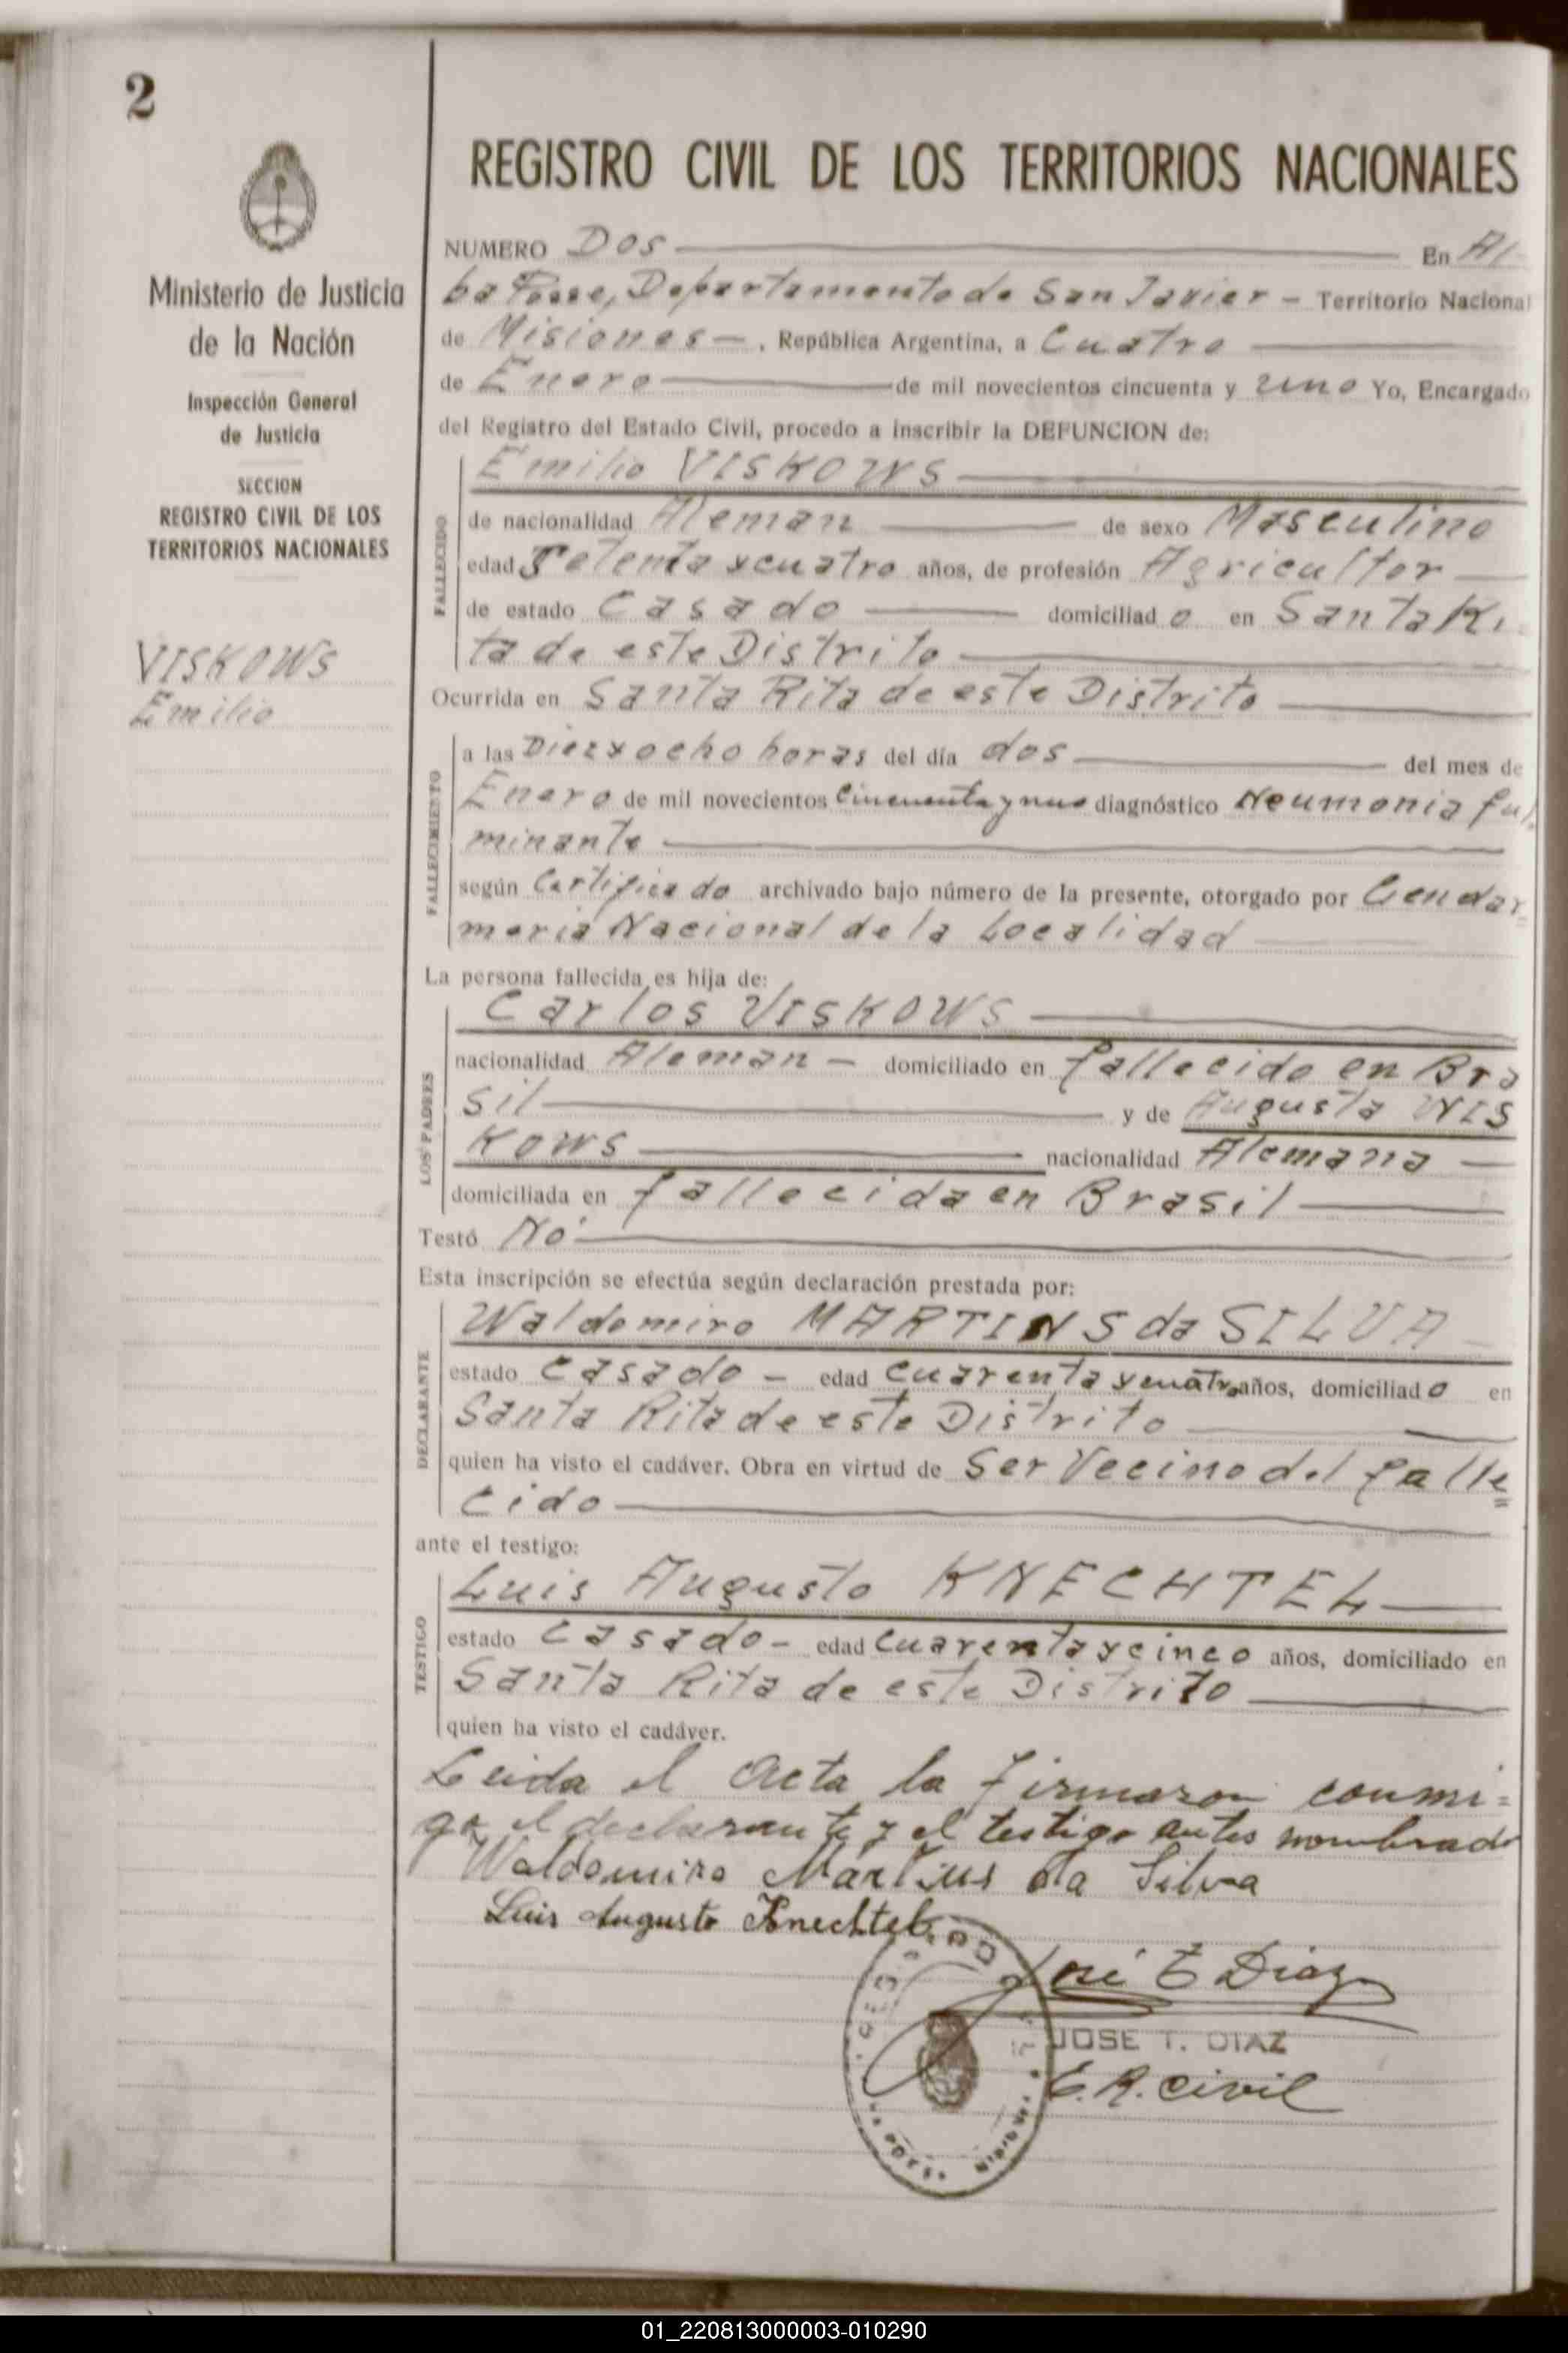 2
Ministerio de Justicia
de la Nación
Inspección General
de Justicia
SECCION
REGISTRO CIVIL DE LOS
TERRITORIOS NACIONALES
VISKOWS
Emilio
REGISTRO CIVIL DE LOS TERRITORIOS NACIONALES
NUMERO Dos En Al
ba Posse, Departamento de San Javier - Territorio Nacional
de Misiones -, República Argentina, a Cuatro
de Enero de mil novecientos cincuenta y uno Yo, Encargado
del Registro del Estado Civil, procedo a inscribir la DEFUNCION de:
Emilio VISKOWS
FALLECIDO
de nacionalidad Aleman de sexo Masculino
edad Setenta y cuatro años, de profesión Agricultor
de estado Casado domiciliado en Santa Ri
ta de este Distrito
Ocurrida en Santa Rita de este Distrito
FALLECIMIENTO
a las Diez y ocho horas del día dos del mes de
Enero de mil novecientos cincuenta y uno diagnóstico Neumonia ful
minante
según Certificado archivado bajo número de la presente, otorgado por Gendar
meria Nacional de la Localidad
La persona fallecida es hija de:
LOS PADRES
Carlos VISKOWS
nacionalidad Aleman - domiciliado en fallecido en Bra
sil y de Augusta WIS
KOWS nacionalidad Alemana
domiciliada en fallecida en Brasil
Testó No
Esta inscripción se efectúa según declaración prestada por:
DECLARANTE
Waldomiro MARTINS da SILVA
estado Casado - edad cuarenta y cuatro años, domiciliado en
Santa Rita de este Distrito
quien ha visto el cadáver. Obra en virtud de Ser Vecino del falle
cido
ante el testigo:
TESTIGO
Luis Augusto KNECHTEL
estado Casado - edad cuarenta y cinco años, domiciliado en
Santa Rita de este Distrito
quien ha visto el cadáver.
Leida el Acta la firmaron conmi=
go el declarante y el testigo antes nombrado
Waldomiro Martins da Silva
Luis Augusto Knechtel
José T Diaz
JOSE T. DIAZ
E. R. Civil
01_220813000003-010290